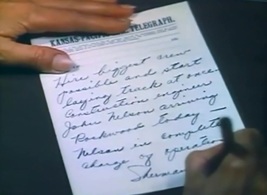 KANSAS TELEGRAPH.
Hire biggest crew
possible and start
laying track at once
Construction engineer
John Nelson arriving
Rockwood today —
Nelson in complete
charge of operation
Sherman